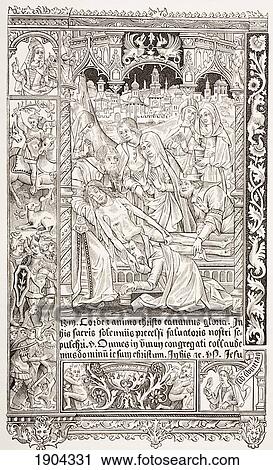 Corde & animo christo canamus gloriã. In
his sacris solenniis precelsi saluatoris nostri se
pulchri. Omnes in vnum congregati collaude
mus dominũ iesum christum.
Jesu
1904331 www.fotosearch.com